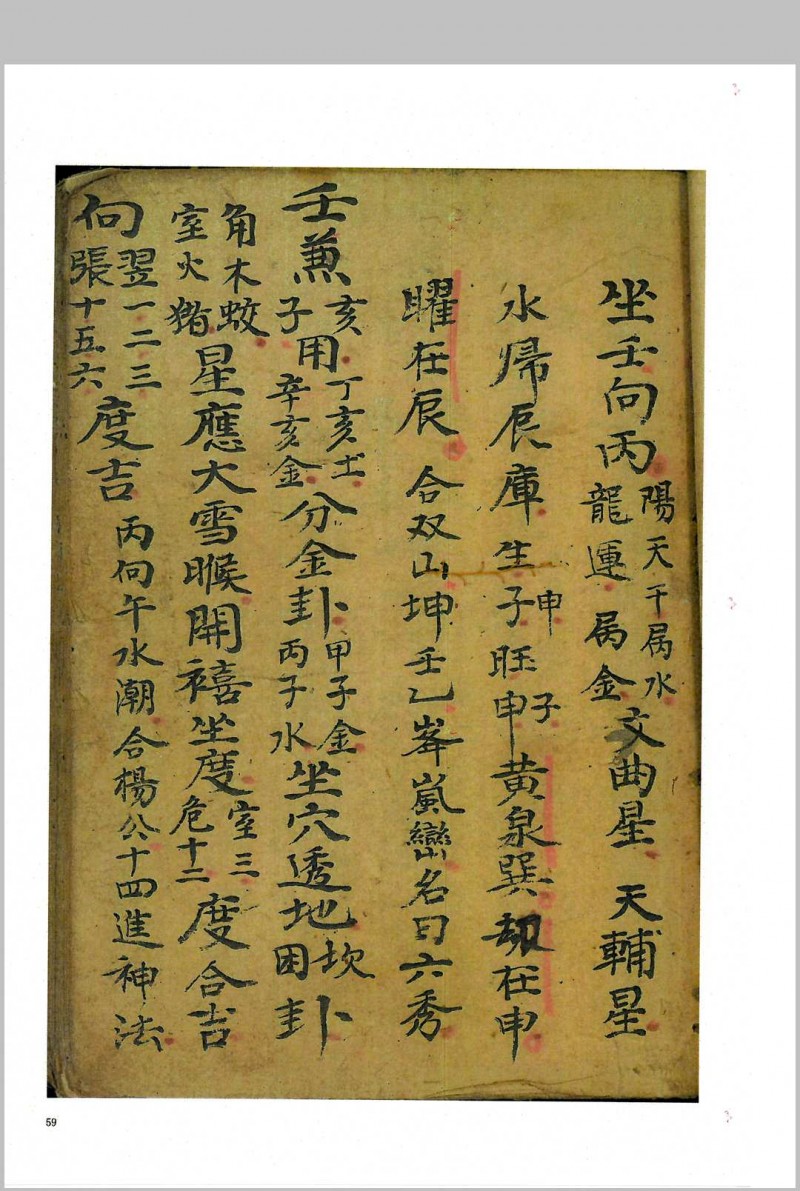 坐壬向丙陽天干屬水龍運屬金文曲星天輔星
水歸辰庫生子申旺申子黃泉巽劫在申
曜在辰合双山坤壬乙峯嵐巒名曰六秀
壬兼亥子用丁亥土辛亥金分金卦甲子金丙子水坐穴透地坎困卦
角木蛟室火猪星應大雪睺開禧坐度室三危十二度合吉
向翌一二三張十五六度吉丙向午水潮合楊公十四進神法
59